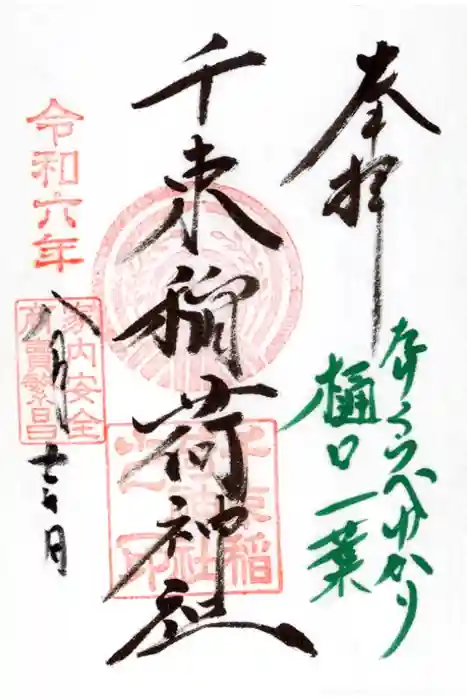 奉拝
たけくらべゆかり
樋口一葉
千束稲荷神社
千束稲荷神社之印
令和六年
八月
日
家内安全
商賣繁昌